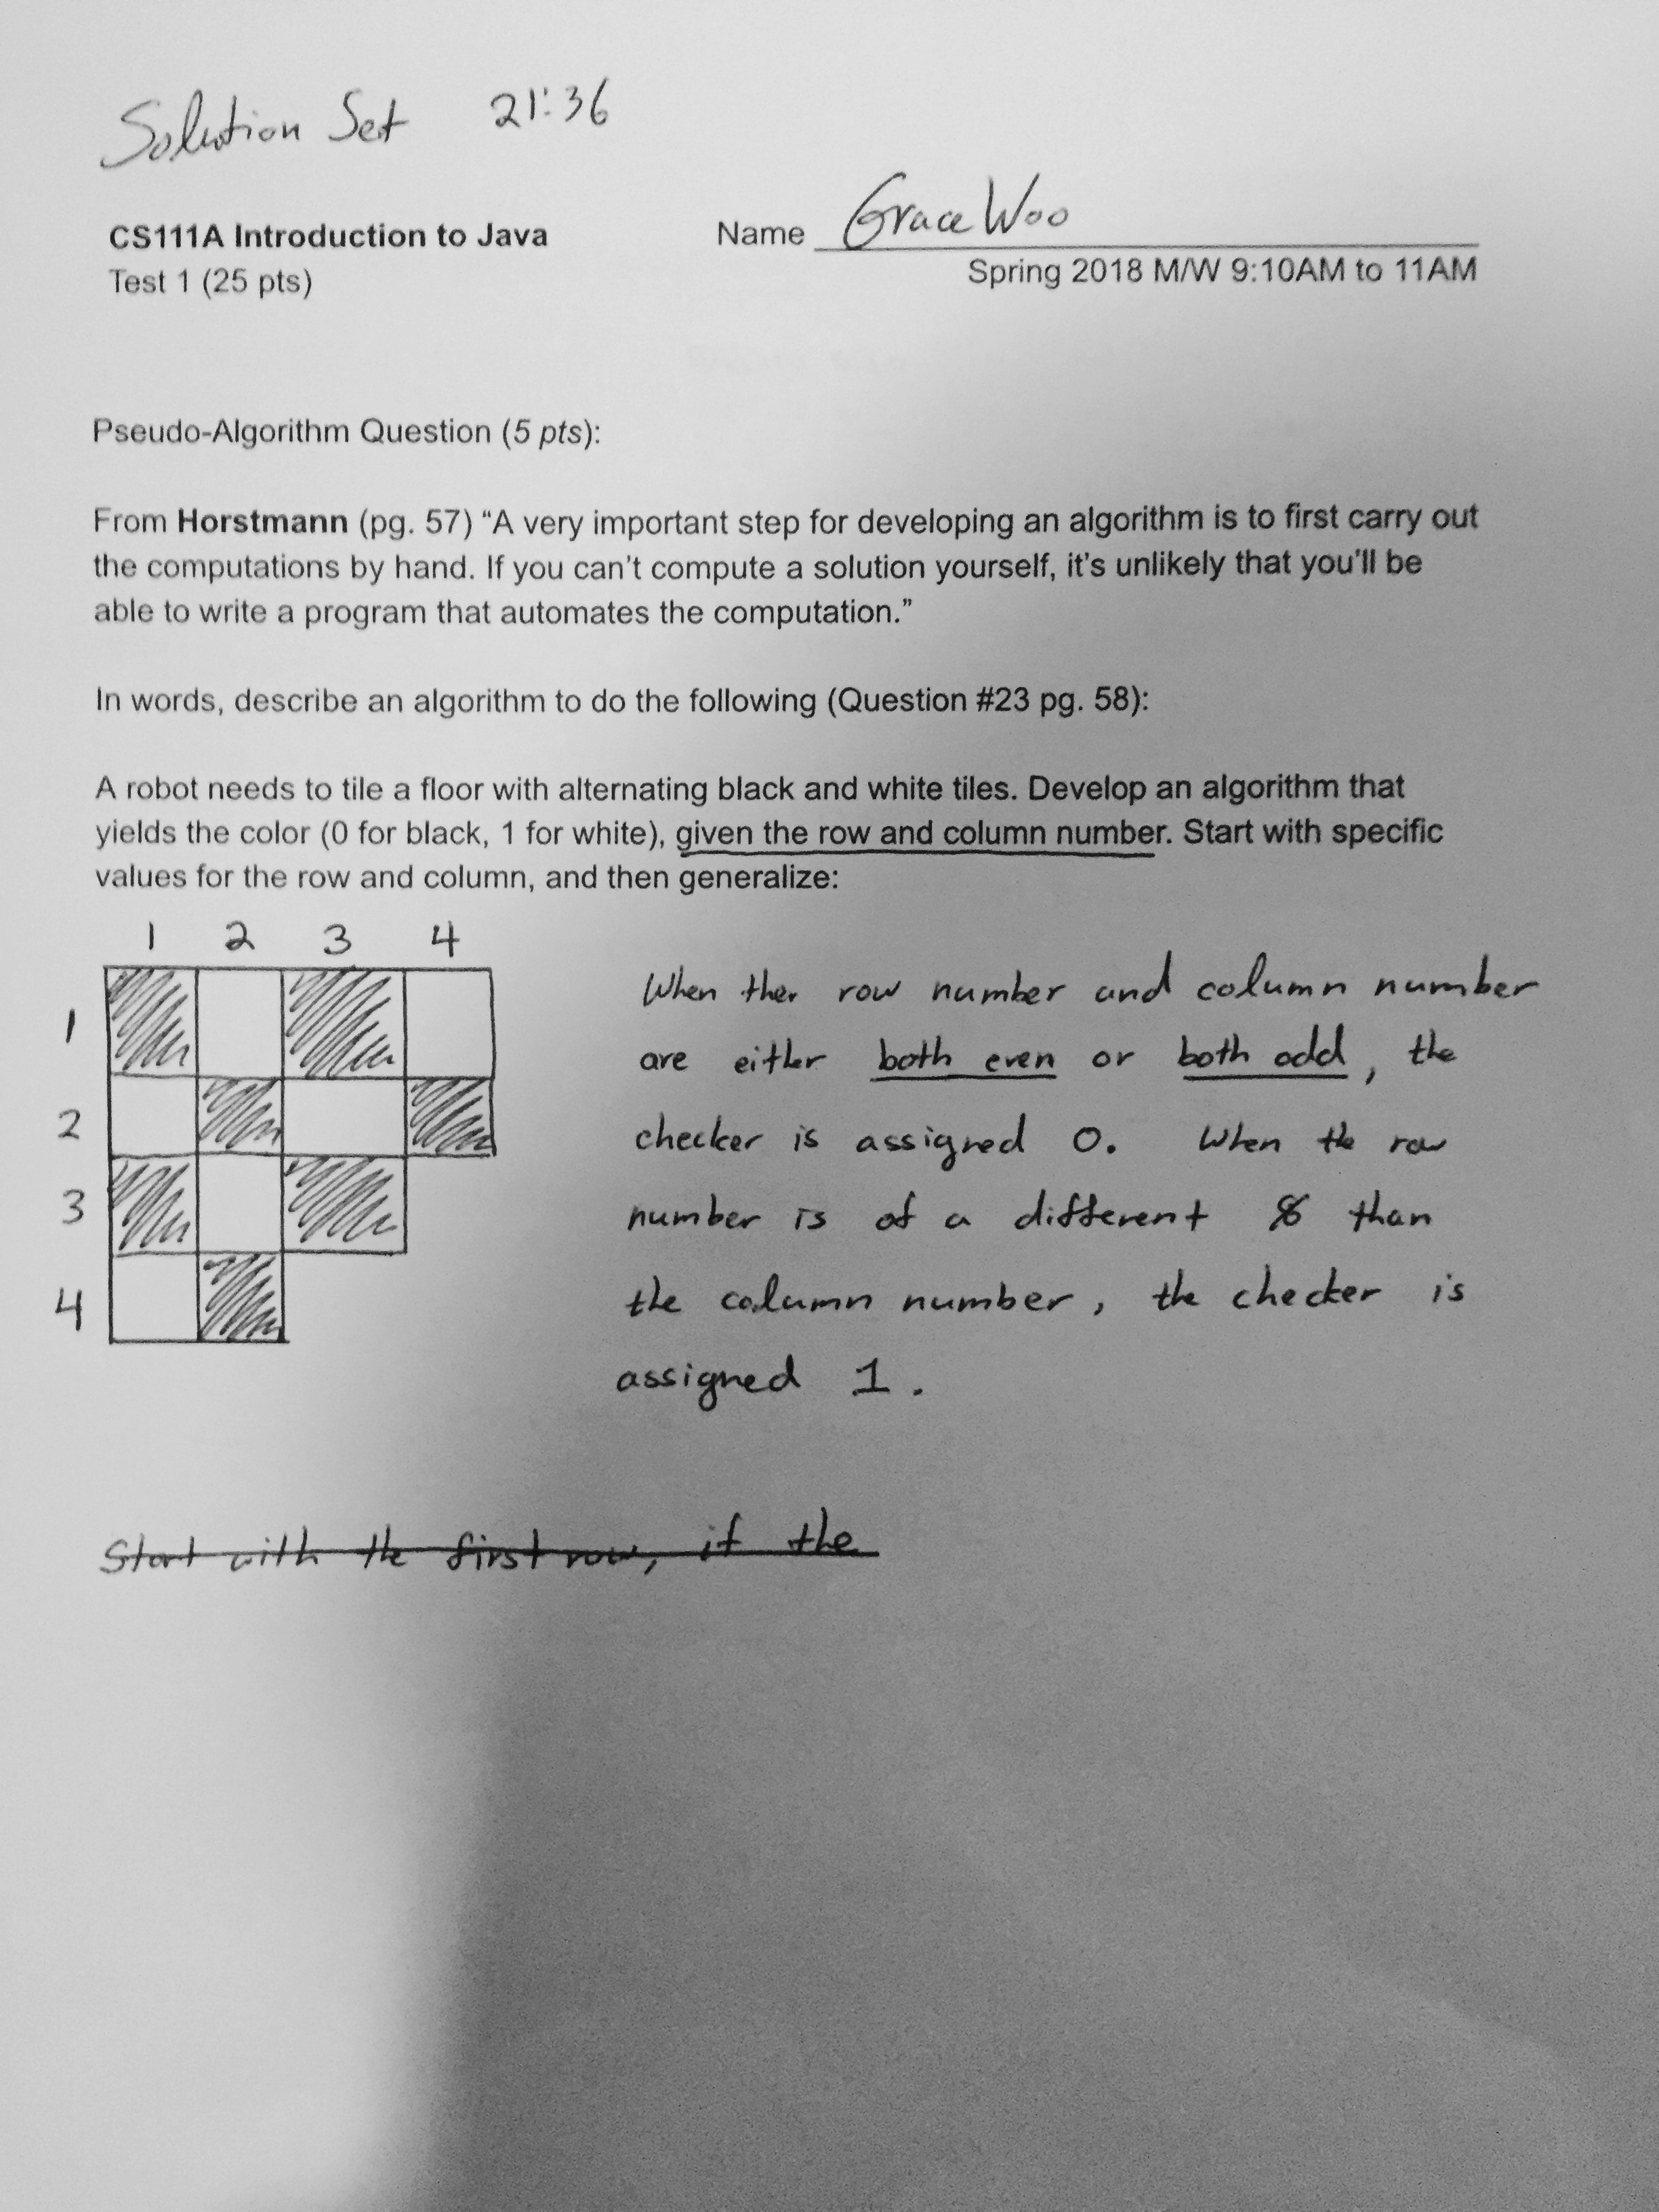 Solution Set 21:36
CS111A Introduction to Java Name Grace Woo
Test 1 (25 pts) Spring 2018 M/W 9:10AM to 11AM
Pseudo-Algorithm Question (5 pts):
From Horstmann (pg. 57) “A very important step for developing an algorithm is to first carry out
the computations by hand. If you can’t compute a solution yourself, it’s unlikely that you’ll be
able to write a program that automates the computation.”
In words, describe an algorithm to do the following (Question #23 pg. 58):
A robot needs to tile a floor with alternating black and white tiles. Develop an algorithm that
yields the color (0 for black, 1 for white), given the row and column number. Start with specific
values for the row and column, and then generalize:
1 2 3 4
1
2
3
4
When ther row number and column number
are either both even or both odd, the
checker is assigned 0. When the row
number is of a different than
the column number, the checker is
assigned 1.
Start with the first row, if the